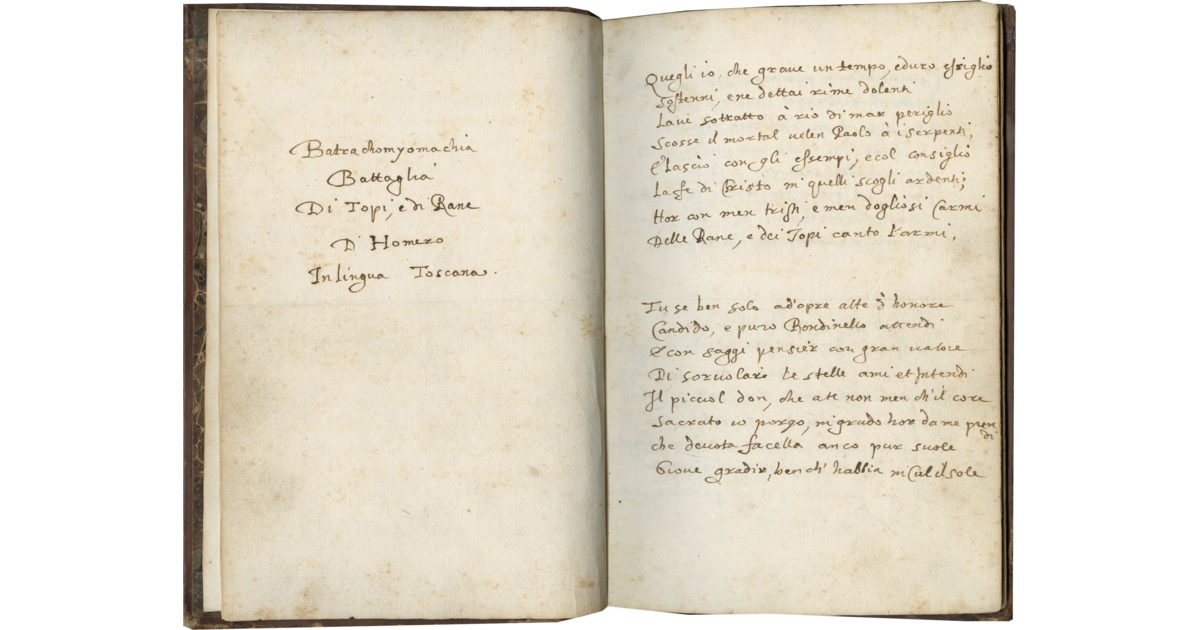 Batrachomyomachia
Battaglia
Di Topi, e di Rane
D' Homero
In lingua Toscana.
Quegli io, che graue un tempo, e duro essiglio
Sostenni, e ne dettai rime dolenti
Laue sottratto à rio di mar periglio
Scosse il mortal uelen Paolo à i serpenti,
E lasciò con gli essempi, e col consiglio
La fe di Christo in quelli scogli ardenti;
Hor con men tristi, e men dogliosi Carmi
Delle Rane, e dei Topi canto l'armi.
Tu se ben solo ad opre alte d' honore
Candido, e puro Bondinello attendi
E con saggi pensier con gran ualore
Di soruolar le stelle ami et intendi
Il picciol don, che a te non men ch'il core
Sacrato io porgo, in grado hor da me prendi
che deuota facella anco pur suole
Gioue gradir, ben ch' habbia in Ciel il sole